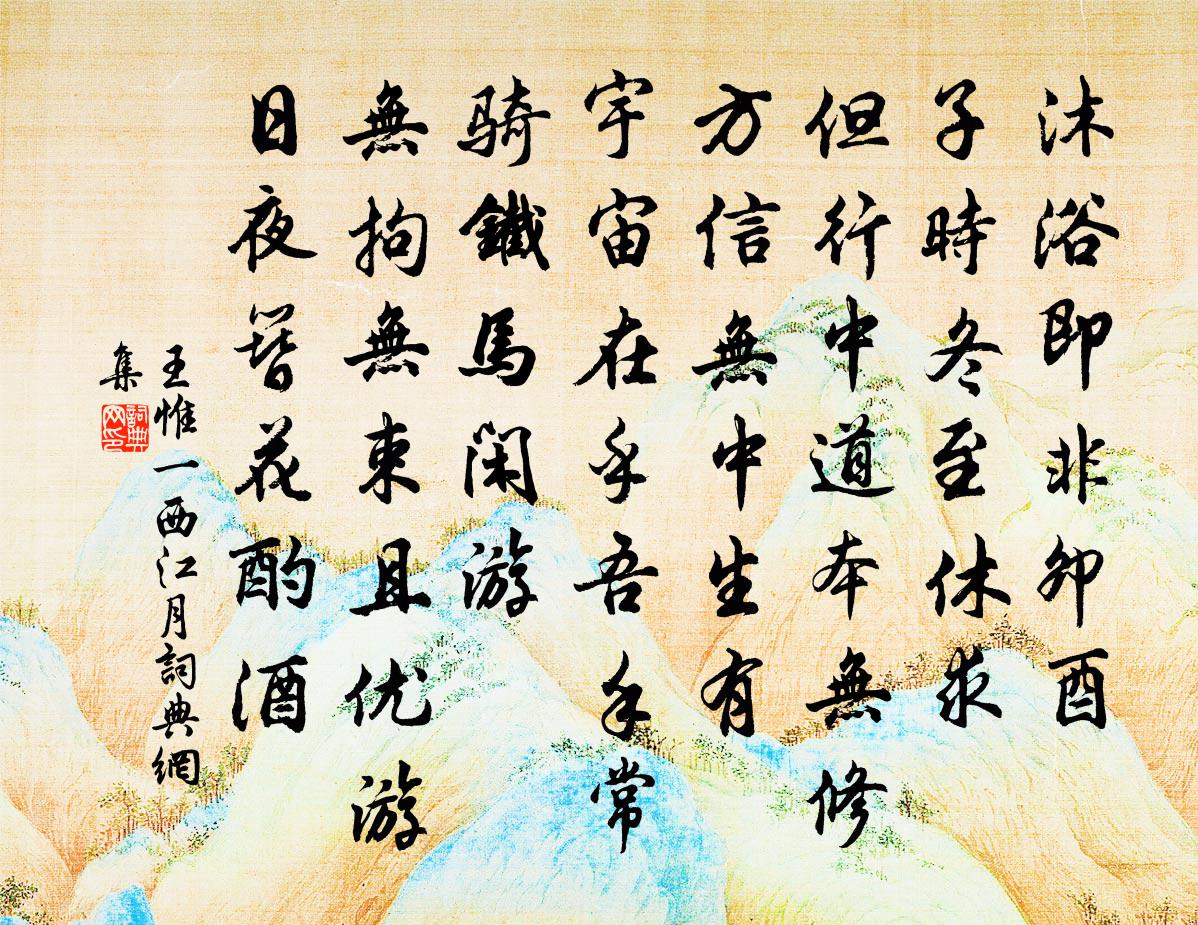 沐浴即非卯酉
子時冬至休求
但行中道本無修
方信無中生有
宇宙在乎吾手常
騎鐵馬閑游
無拘無束且优游
日夜簪花酌酒
王惟一西江月詞典網
集
詞典网印